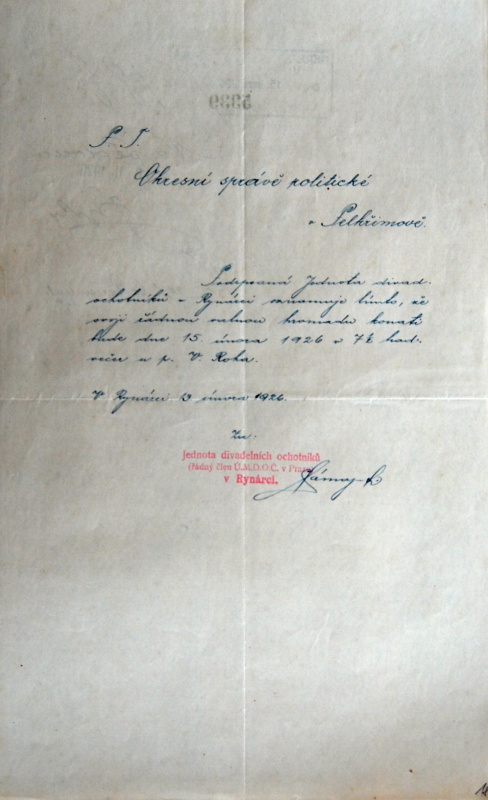 P. T.
Okresní správě politické
v Pelhřimově.
Podepsaná Jednota divad.
ochotníků v Rynárci oznamuje tímto, že
svoji řádnou valnou hromadu konati
bude dne 15 února 1926 v 7½ hod.
večer u p. V. Roka.
V Rynárci 13 února 1926.
Za:
Jednota divadelních ochotníků
(řádný člen Ú.M.D.O.Č. v Praze)
v Rynárci.
5339